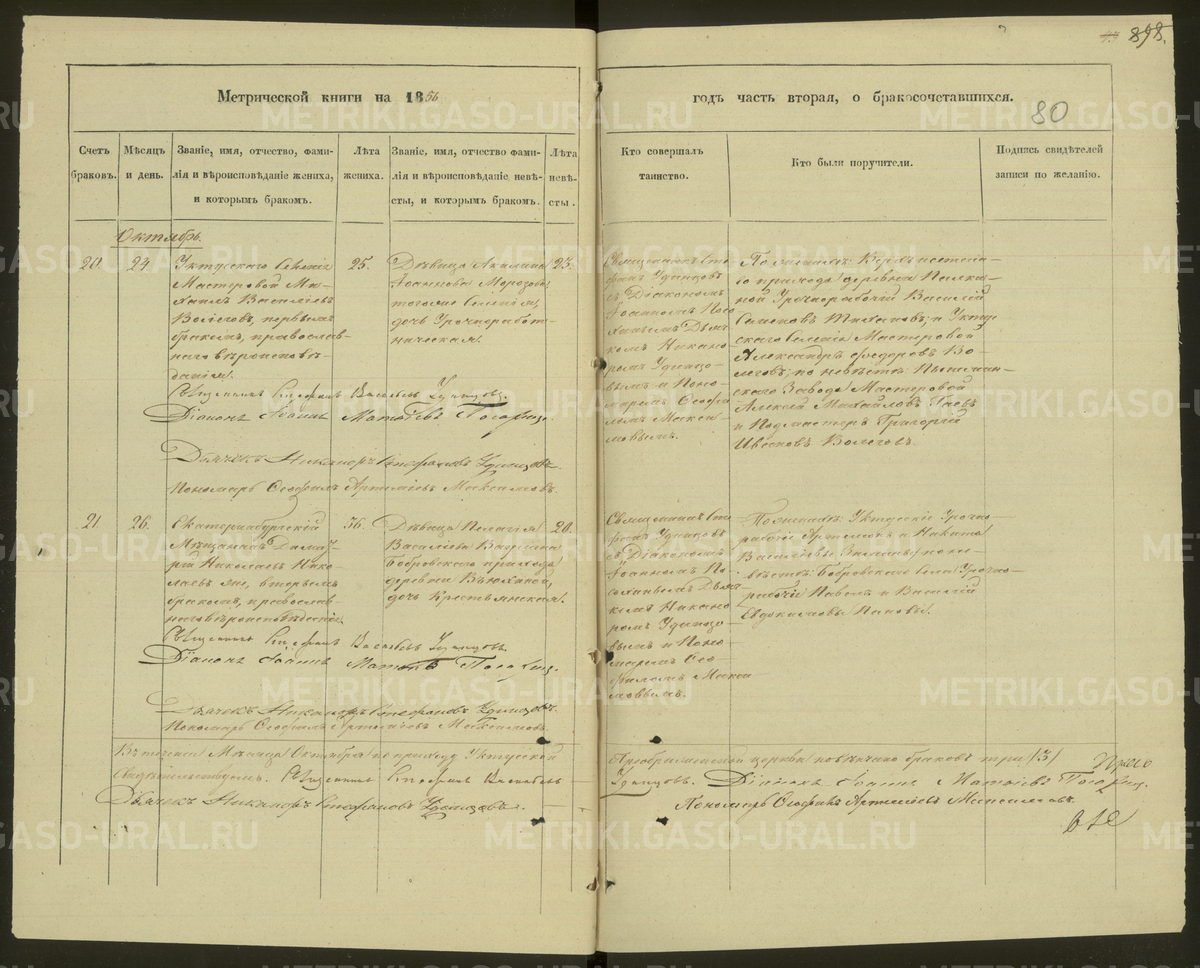 898.
80
Метрической книги на 1856
годъ часть вторая, о бракосочетавшихся.
Счетъ браковъ.
Мѣсяцъ и день.
Званіе, имя, отчество, фами-
лія и вѣроисповѣданіе жениха,
и которымъ бракомъ.
Лѣта
жениха.
Званіе, имя, отчество фами-
лія и вѣроисповѣданіе невѣ-
сты, и которымъ бракомъ.
Лѣта
невѣ-
сты.
Кто совершалъ
таинство.
Кто были поручители.
Подпись свидѣтелей
записи по желанію.
Октябрь.
20.
24
Уктусскаго Селенія
Мастеровой Ми-
хаилъ Василіевъ
Волеговъ, первымъ
бракомъ, православ-
наго вѣроисповѣ-
данія.
25.
Дѣвица Акилина
Іоаннова Морозова
тогоже Селенія,
дочь Урочноработ-
ническая.
23.
Священникъ Сте-
фанъ Удинцовъ
съ Діакономъ
Іоанномъ
Дьяч-
комъ Никано-
ромъ Удинцо-
вымъ и Поно-
маремъ Ѳеофи-
ломъ Макси-
мовымъ.
По женихѣ:
прихода деревни
Урочнорабочій Василій
Семеновъ и Укту-
скаго Селенія Мастеровой
Александръ Ѳедоровъ Во-
леговъ; по невѣстѣ:
скаго Завода Мастеровой
Алексій Михайловъ
и Подмастеръ Григорій
Волеговъ.
Священникъ Стефанъ Василіевъ Удинцовъ.
Діаконъ Іоаннъ Матѳіевъ
Дьячекъ Никаноръ Стефановъ Удинцовъ.
Пономарь Ѳеофилъ Артеміевъ Максимовъ.
21.
26.
Екатеринбургскій
Мѣщанинъ Дими-
трій Николаевъ Нико-
лаевъ же, вторымъ
бракомъ, православ-
наго вѣроисповѣданія.
36.
Дѣвица Пелагія
Василіева
Бобровскаго прихода
деревни
дочь Крестьянская.
20.
Священникъ Сте-
фанъ Удинцовъ
съ Діакономъ
Іоанномъ
Дьяч-
комъ Никано-
ромъ Удинцо-
вымъ и Поно-
маремъ Ѳео-
филомъ Макси-
мовымъ.
По женихѣ: Уктусскіе Урочно-
рабочіе Артемій и Никита
Василіевы по не-
вѣстѣ: Бобровскаго села Урочно-
рабочіе Павелъ и Василій
Евдокимовы Поповы.
Священникъ Стефанъ Василіевъ Удинцовъ.
Діаконъ Іоаннъ Матѳіевъ
Дьячекъ Никаноръ Стефановъ Удинцовъ.
Пономарь Ѳеофилъ Артеміевъ Максимовъ.
Въ теченіи Мѣсяца Октября по приходу Уктусской Преображенской церкви повѣнчано браковъ три /3/
Свидѣтельствуемъ. Священникъ Стефанъ Василіевъ Удинцовъ. Діаконъ Іоаннъ Матѳіевъ
Дьячекъ Никаноръ Стефановъ Удинцовъ. Пономарь Ѳеофилъ Артеміевъ Максимовъ.
METRIKI.GASO-URAL.RU